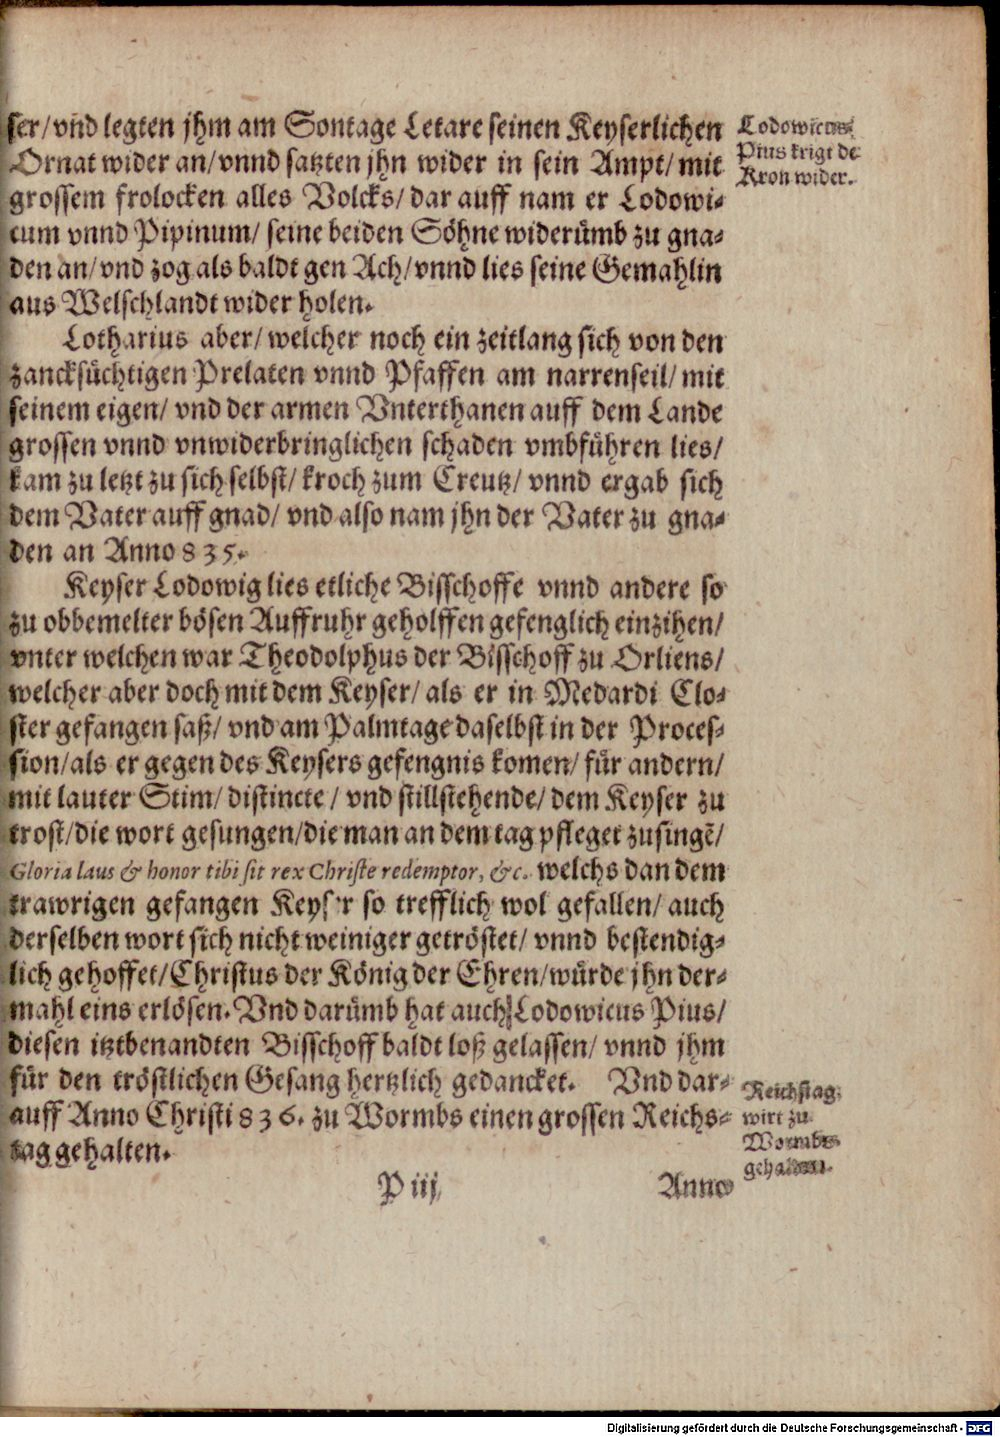 ser/ vnd legten jhm am Sontage Letare seinen Keyserlichen
Ornat wider an/ vnnd satzten jhn wider in sein Ampt/ mit
grossem frolocken alles Volcks/ dar auff nam er Lodowi-
cum vnnd Pipinum/ seine beiden Söhne widerümb zu gna-
den an/ vnd zog als baldt gen Ach/ vnnd lies seine Gemahlin
aus Welschlandt wider holen.
Lotharius aber/ welcher noch ein zeitlang sich von den
zancksüchtigen Prelaten vnnd Pfaffen am narrenseil/ mit
seinem eigen/ vnd der armen Vnterthanen auff dem Lande
grossen vnnd vnwiderbringlichen schaden vmbführen lies/
kam zu letzt zu sich selbst/ kroch zum Creutz/ vnnd ergab sich
dem Vater auff gnad/ vnd also nam jhn der Vater zu gna-
den an Anno 835.
Keyser Lodowig lies etliche Bisschoffe vnnd andere so
zu obbemelter bösen Auffruhr geholffen gefenglich einzihen/
vnter welchen war Theodolphus der Bisschoff zu Orliens/
welcher aber doch mit dem Keyser/ als er in Medardi Clo-
ster gefangen saß/ vnd am Palmtage daselbst in der Proces-
sion/ als er gegen des Keysers gefengnis komen/ für andern/
mit lauter Stim/ distincte/ vnd stillstehende/ dem Keyser zu
trost/ die wort gesungen/ die man an dem tag pfleget zusingē/
Gloria laus & honor tibi sit rex Christe redemptor, &c. welchs dan dem
trawrigen gefangen Keyser so trefflich wol gefallen/ auch
derselben wort sich nicht weiniger getröstet/ vnnd bestendig-
lich gehoffet/ Christus der König der Ehren/ würde jhn der-
mahl eins erlösen. Vnd darümb hat auch Lodowicus Pius/
diesen itztbenandten Bisschoff baldt loß gelassen/ vnnd jhm
für den tröstlichen Gesang hertzlich gedancket. Vnd dar-
auff Anno Christi 836. zu Wormbs einen grossen Reichs-
tag gehalten.
P iij
Anno
Lodowicus
Pius krigt de
Kron wider.
Reichstag
wirt zu
Wormbs
gehalten.
Digitalisierung gefördert durch die Deutsche Forschungsgemeinschaft - DFG